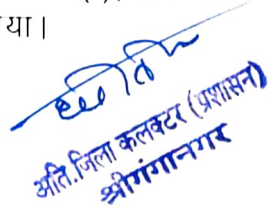 या।
अति.जिला कलक्टर (प्रशासन)
श्रीगंगानगर